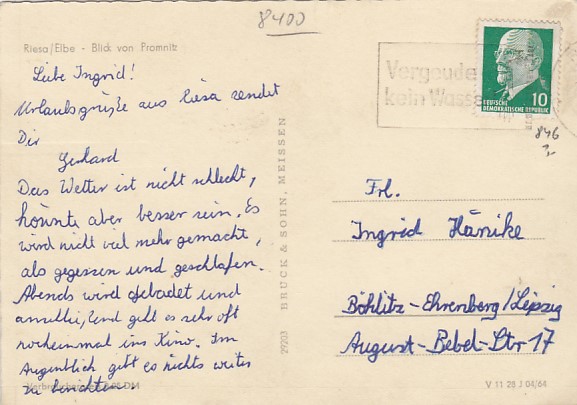 8400
Riesa/Elbe - Blick von Promnitz
Liebe Ingrid!
Urlaubsgrüße aus Riesa sendet
Dir
Gerhard
Das Wetter ist nicht schlecht,
könnte aber besser sein. Es
wird nicht viel mehr gemacht,
als gegessen und geschlafen.
Abends wird gebadet und
geht es sehr oft
nocheinmal ins Kino. Im
Augenblick gibt es nichts weiter
zu berichten.
29203 BRÜCK & SOHN, MEISSEN
Vergeude
kein Wasse
10
DEUTSCHE
DEMOKRATISCHE REPUBLIK
846
Frl.
Ingrid Hänike
Böhlitz-Ehrenberg/Leipzig
August-Bebel-Str 17
V 11 28 J 04/64